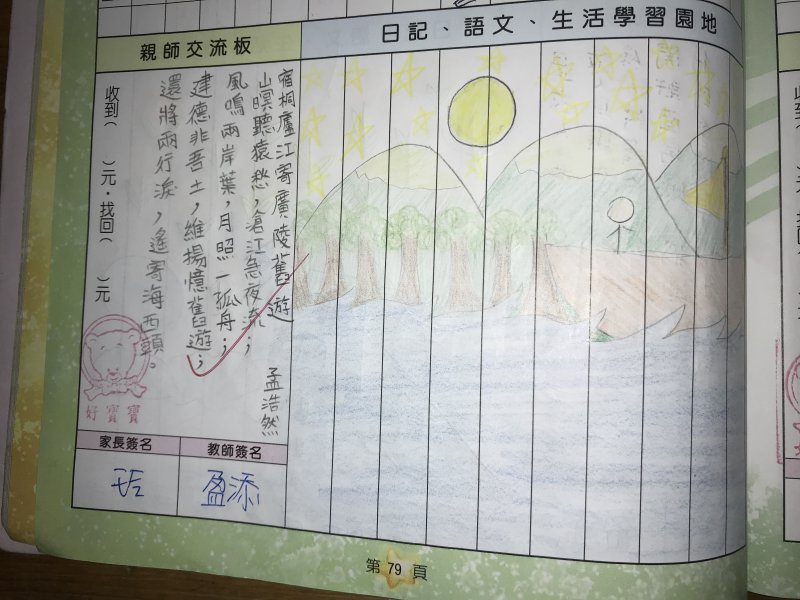 親師交流板
日記、語文、生活學習園地
宿桐廬江寄廣陵舊遊
孟浩然
山暝聽猿愁，滄江急夜流；
風鳴兩岸葉，月照一孤舟；
建德非吾土，維揚憶舊遊；
還將兩行淚，遙寄海西頭。
收到（　）元·找回（　）元
好寶寶
家長簽名
教師簽名
盈添
第 79 頁